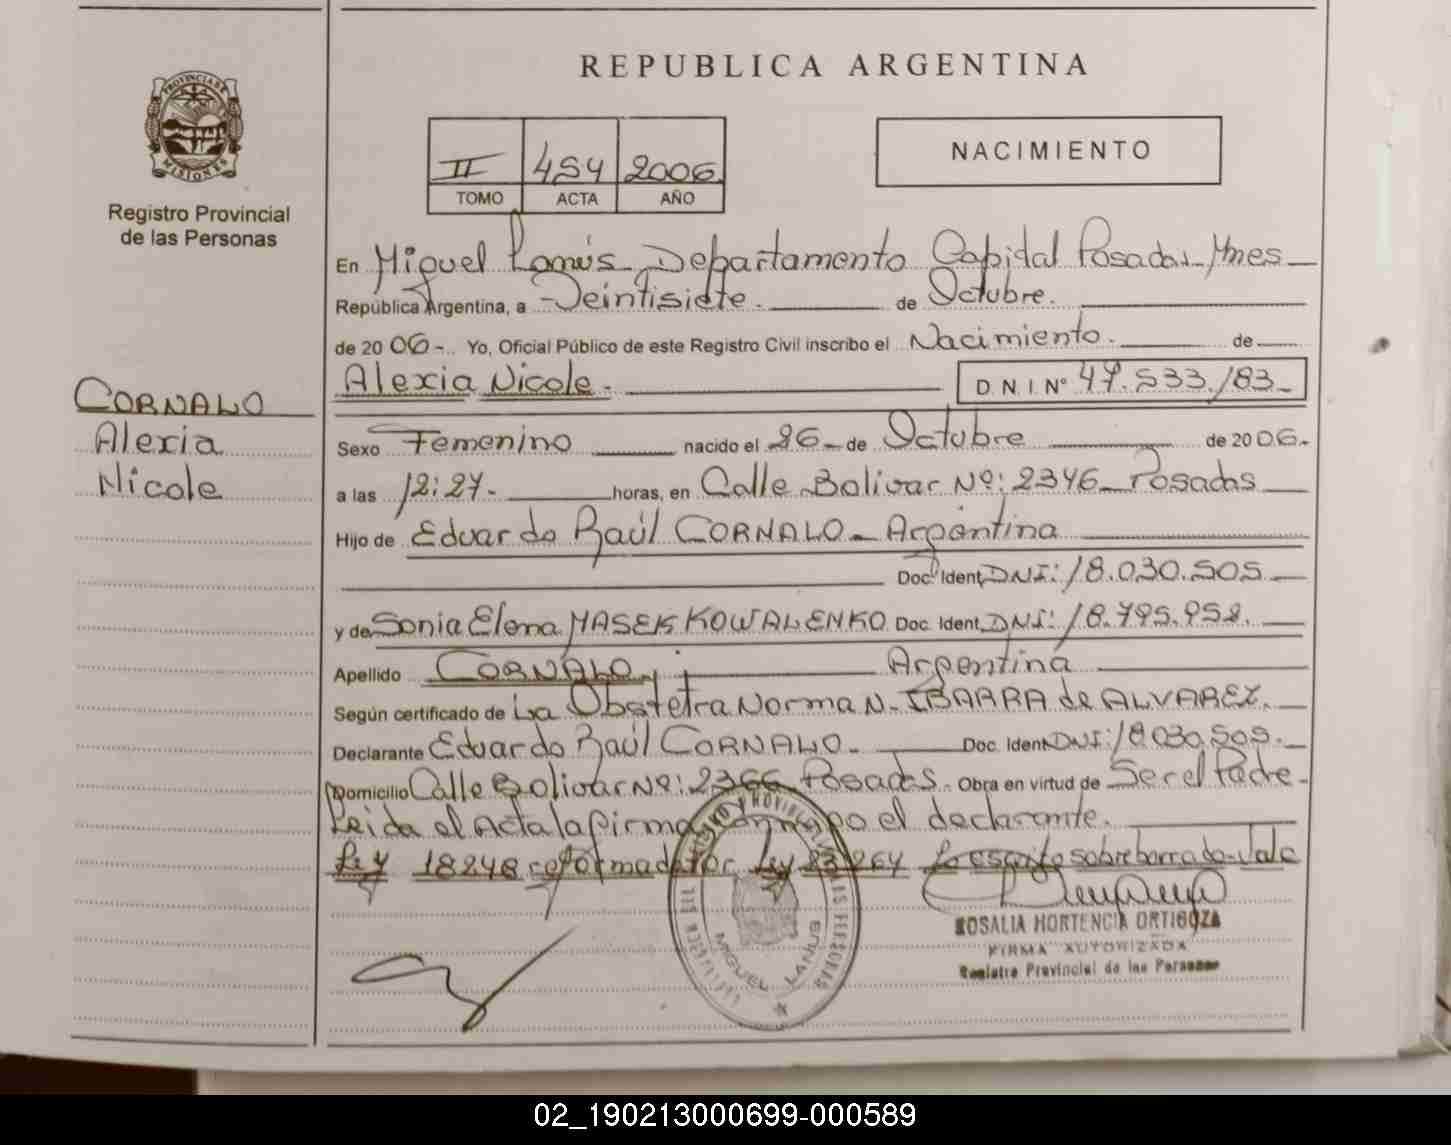 REPUBLICA ARGENTINA
PROVINCIA DE
MISIONES
Registro Provincial
de las Personas
II 454 2006
TOMO ACTA AÑO
NACIMIENTO
En Miguel Lanús Departamento Capital Posadas Mnes
República Argentina, a Veintisiete. de Octubre.
de 2006 -. Yo, Oficial Público de este Registro Civil inscribo el Nacimiento. de
Alexia Nicole. D. N. I. Nº 47.533.183
CORNALO
Alexia
Nicole
Sexo Femenino nacido el 26 de Octubre de 2006.
a las 12:27. horas, en Calle Bolivar Nº: 2346 Posadas
Hijo de Eduardo Raúl CORNALO - Argentina
Doc. Ident. DNI: 18.030.505
y de Sonia Elena MASEK KOWALENKO Doc. Ident. DNI: 18.795.952.
Apellido CORNALO. Argentina
Según certificado de La Obstetra Norma N. IBARRA de ALVAREZ.
Declarante Eduardo Raúl CORNALO. Doc. Ident. DNI: 18.030.505.
Domicilio Calle Bolivar Nº: 2366 Posadas. Obra en virtud de Ser el Padre
Leida el Acta la firma conmigo el declarante.
Ley 18248 reformada por Ley 23264 Lo escrito sobre borrado Vale
ROSALIA HORTENCIA ORTIGOZA
FIRMA AUTORIZADA
Registro Provincial de las Personas
MIGUEL LANUS
02_190213000699-000589